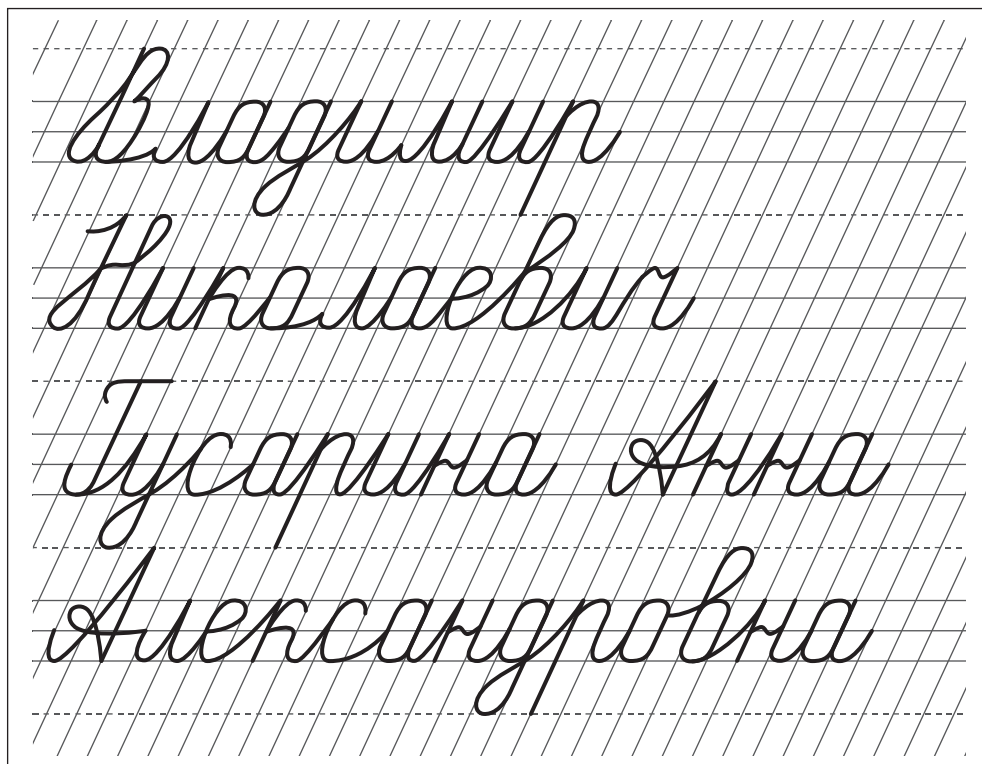 Владимир
Николаевич
Гусарина Анна
Александровна